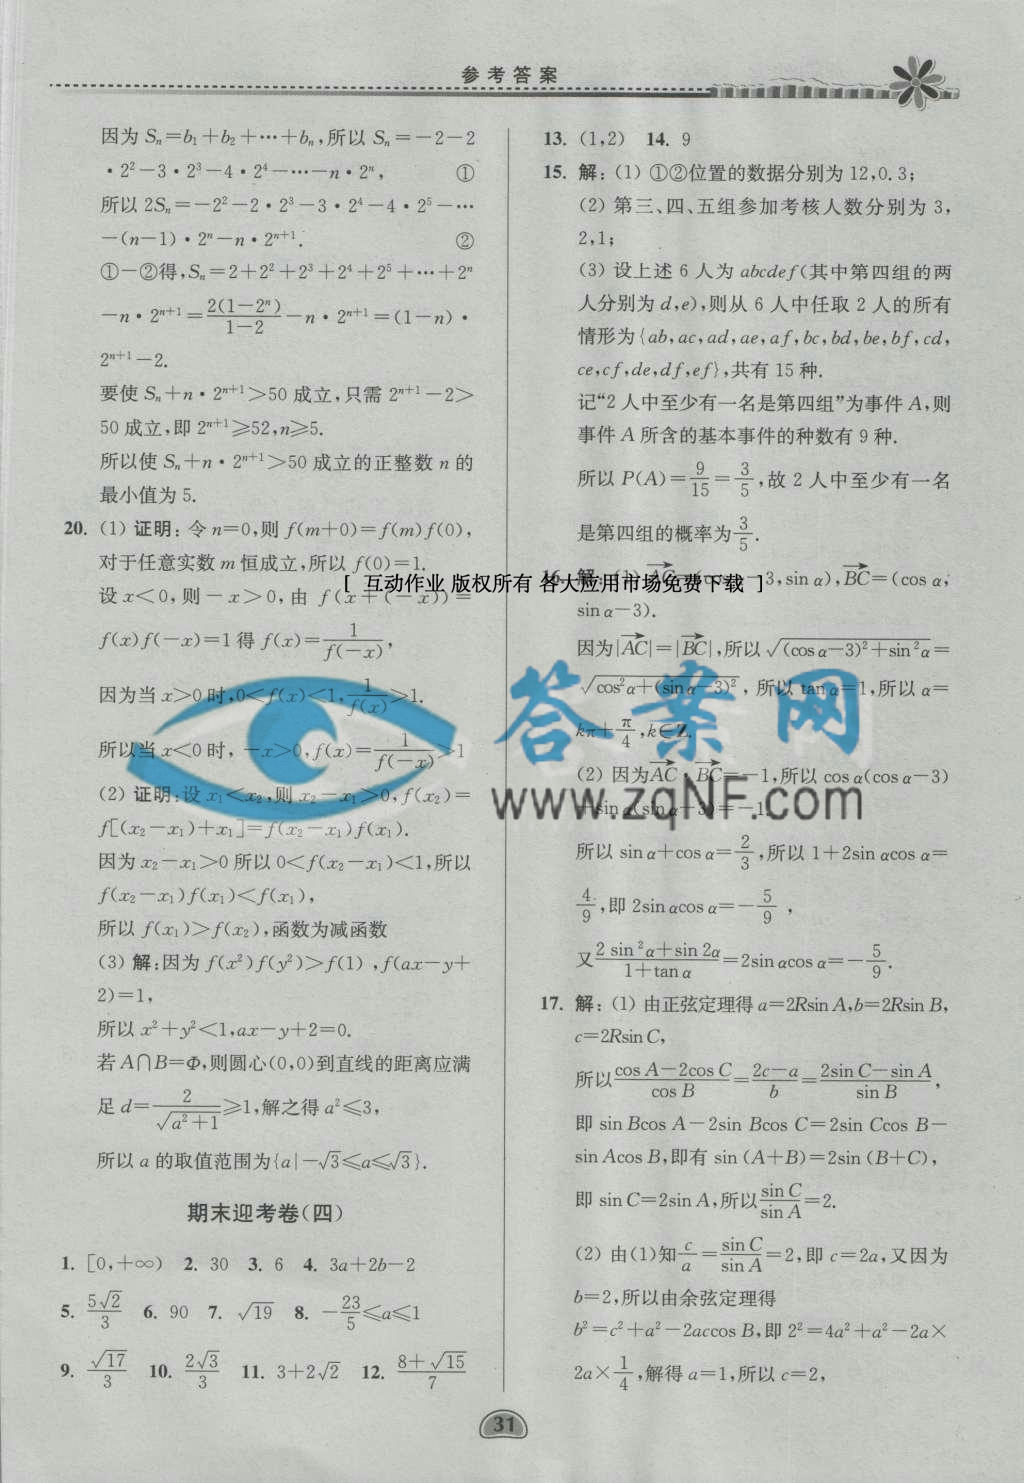 参考答案
因为 Sₙ=b₁+b₂+⋯+bₙ,所以 Sₙ=-2-2
·2²-3·2³-4·2⁴-⋯-n·2ⁿ, ①
所以 2Sₙ=-2²-2·2³-3·2⁴-4·2⁵-⋯
-(n-1)·2ⁿ-n·2ⁿ⁺¹. ②
①-②得,Sₙ=2+2²+2³+2⁴+2⁵+⋯+2ⁿ
-n·2ⁿ⁺¹=2(1-2ⁿ)/(1-2)-n·2ⁿ⁺¹=(1-n)·
2ⁿ⁺¹-2.
要使 Sₙ+n·2ⁿ⁺¹>50 成立,只需 2ⁿ⁺¹-2>
50 成立,即 2ⁿ⁺¹≥52,n≥5.
所以使 Sₙ+n·2ⁿ⁺¹>50 成立的正整数 n 的
最小值为 5.
20. (1) 证明:令 n=0,则 f(m+0)=f(m)f(0),
对于任意实数 m 恒成立,所以 f(0)=1.
设 x<0,则 -x>0,由 f(x+(-x))=
f(x)f(-x)=1 得 f(x)=1/f(-x),
因为当 x>0 时,0<f(x)<1,1/f(x)>1.
所以当 x<0 时, -x>0,f(x)=1/f(-x)>1
(2) 证明:设 x₁<x₂,则 x₂-x₁>0,f(x₂)=
f[(x₂-x₁)+x₁]=f(x₂-x₁)f(x₁).
因为 x₂-x₁>0 所以 0<f(x₂-x₁)<1,所以
f(x₂-x₁)f(x₁)<f(x₁),
所以 f(x₁)>f(x₂),函数为减函数
(3) 解:因为 f(x²)f(y²)>f(1) ,f(ax-y+
2)=1,
所以 x²+y²<1,ax-y+2=0.
若 A∩B=Φ,则圆心(0,0)到直线的距离应满
足 d=2/√(a²+1)≥1,解之得 a²≤3,
所以 a 的取值范围为{a|-√3≤a≤√3}.
期末迎考卷(四)
1. [0,+∞) 2. 30 3. 6 4. 3a+2b-2
5. 5√2/3 6. 90 7. √19 8. -23/5≤a≤1
9. √17/3 10. 2√3/3 11. 3+2√2 12. (8+√15)/7
13. (1,2) 14. 9
15. 解:(1) ①②位置的数据分别为 12,0.3;
(2) 第三、四、五组参加考核人数分别为 3,
2,1;
(3) 设上述 6 人为 abcdef(其中第四组的两
人分别为 d,e),则从 6 人中任取 2 人的所有
情形为{ab,ac,ad,ae,af,bc,bd,be,bf,cd,
ce,cf,de,df,ef},共有 15 种.
记“2 人中至少有一名是第四组”为事件 A,则
事件 A 所含的基本事件的种数有 9 种.
所以 P(A)=9/15=3/5,故 2 人中至少有一名
是第四组的概率为3/5.
16. 解:(1) AC=(cos α-3,sin α),BC=(cos α,
sin α-3).
因为|AC|=|BC|,所以 √((cos α-3)²+sin²α)=
√(cos²α+(sin α-3)²), 所以 tan α=1,所以 α=
kπ+π/4,k∈Z.
(2) 因为AC·BC=-1,所以 cos α(cos α-3)
+sin α(sin α-3)=-1.
所以 sin α+cos α=2/3,所以 1+2sin αcos α=
4/9,即 2sin αcos α=-5/9 ,
又(2 sin²α+sin 2α)/(1+tan α)=2sin αcos α=-5/9.
17. 解:(1) 由正弦定理得 a=2Rsin A,b=2Rsin B,
c=2Rsin C,
所以(cos A-2cos C)/cos B=(2c-a)/b=(2sin C-sin A)/sin B,
即 sin Bcos A-2sin Bcos C=2sin Ccos B-
sin Acos B,即有 sin (A+B)=2sin (B+C),
即 sin C=2sin A,所以sin C/sin A=2.
(2) 由(1)知c/a=sin C/sin A=2,即 c=2a,又因为
b=2,所以由余弦定理得
b²=c²+a²-2accos B,即 2²=4a²+a²-2a×
2a×1/4,解得 a=1,所以 c=2,
[ 互动作业 版权所有 各大应用市场免费下载 ]
答案网
www.zqNF.com
31